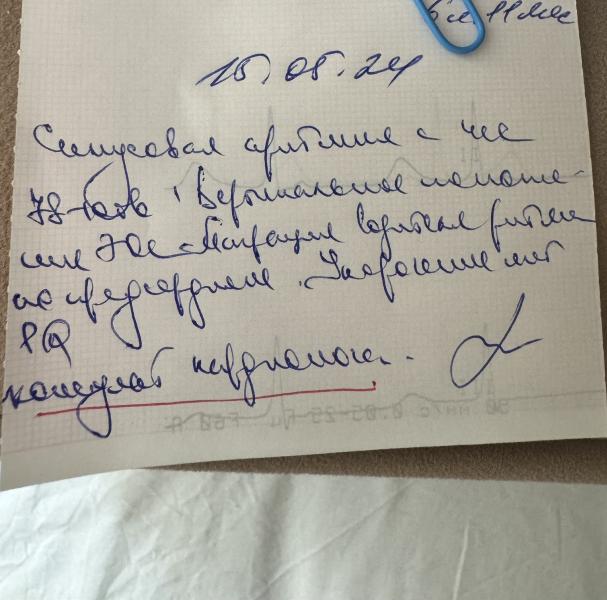 6 л. 11 мес
15.05.24
Синусовая аритмия с чсс
78-
Вертикальное положе-
ние ЭОС Миграция водителя ритма
по предсердиям. Укорочение инт
PQ
консульт кардиолога.